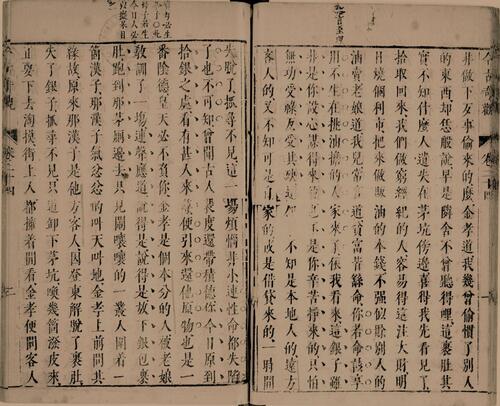 井做下歹事偷來的麼金孝道我幾曾偷慣了別人
的東西却恁般說早是隣舍不曾聽得哩這裹肚其
實不知什麼人遺失在茅坑傍邊喜得我先看見了
拾取回來我們做窮經紀的人容易得這注大財明
日燒個利市把來做販油的本錢不強似賒別人的
油賣老娘道我兒常言道貧富皆由命你若命該享
用不生在挑油擔的人家來了依我看來這銀子雖
非是你設心謀得來的也不是你辛苦掙來的只怕
無功受祿反受其殃這 不知是本地人的遠方
客人的又不知可是自家的或是借貸來的一時間
失脫了抓尋不見這一場煩惱非小連性命都失陷
了也不可知曾聞古人裴度還帶積德你今日原到
拾銀之處看有甚人來尋便引來還他原物也是一
番陰德皇天必不負你金孝是個本分的人被老娘
教訓了一場連聲應道說得是說得是放下銀包裹
肚跑到那茅廁邊去只見鬧嚷嚷的一叢人圍着一
箇漢子那漢子氣忿忿的叫天叫地金孝上前問其
緣故原來那漢子是他方客人因登東解脫了裹肚
失了銀子抓尋不見只道卸下茅坑喚幾箇潑皮來
正要下去淘摸街上人都擁着閒看金孝便問客人